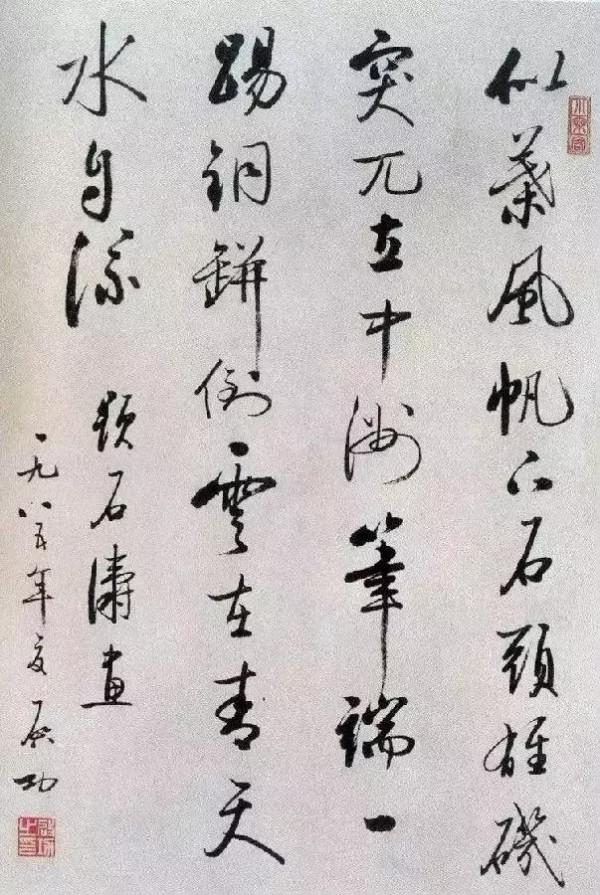 似葉風帆下石頭雄磯
突兀立中洲筆端一
踢銅缾倒雲在青天
水自流
題石濤畫
一九八五年夏启功